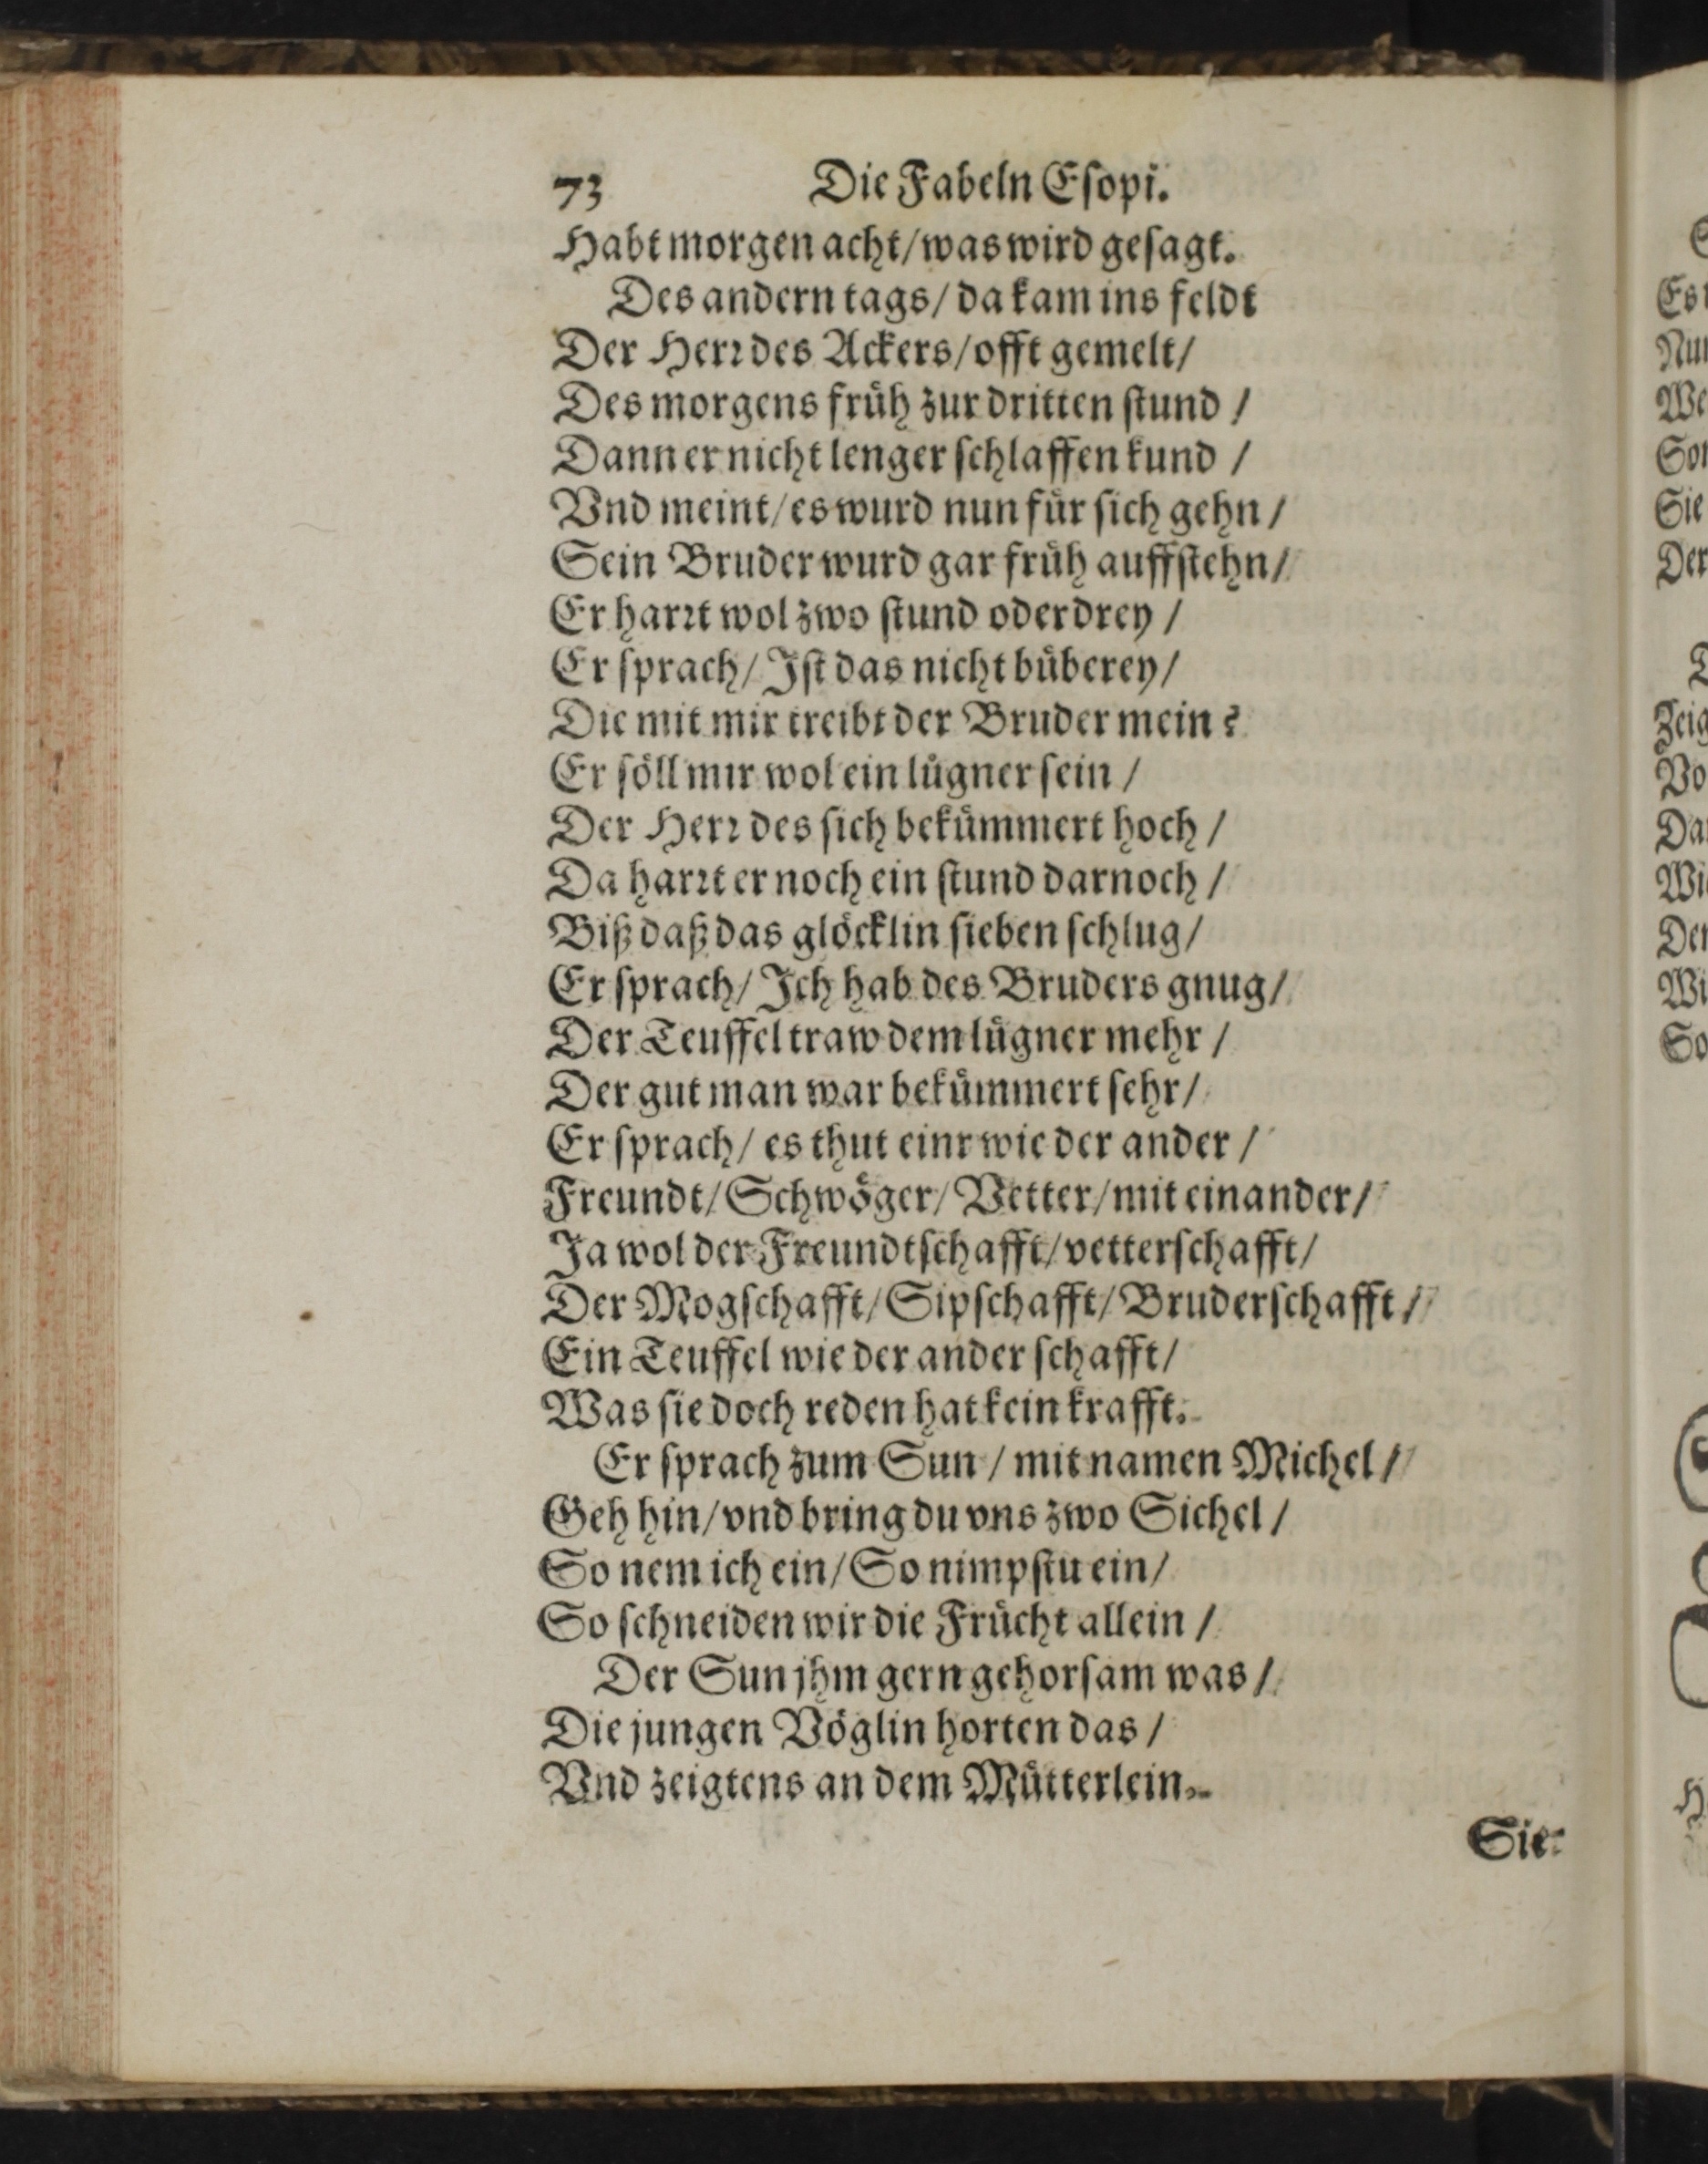 73 Die Fabeln Eſopi.
Habt morgen acht/ was wird geſagt.
Des andern tags/ da kam ins feldt
Der Herꝛ des Ackers/ offt gemelt/
Des morgens fruͤh zur dritten ſtund /
Dann er nicht lenger ſchlaffen kund /
Vnd meint/ es wurd nun fuͤr ſich gehn /
Sein Bruder wurd gar fruͤh auffſtehn/
Er harꝛt wol zwo ſtund oder drey /
Er ſprach/ Iſt das nicht buͤberey/
Die mit mir treibt der Bruder mein?
Er ſoͤll mir wol ein luͤgner ſein /
Der Herꝛ des ſich bekuͤmmert hoch /
Da harꝛt er noch ein ſtund darnoch /
Biß daß das gloͤcklin ſieben ſchlug/
Er ſprach/ Ich hab des Bruders gnug/
Der Teuffel traw dem luͤgner mehr /
Der gut man war bekuͤmmert ſehr/
Er ſprach/ es thut einr wie der ander /
Freundt/ Schwoͤger/ Vetter/ mit einander/
Ja wol der Freundtſchafft/ vetterſchafft/
Der Mogſchafft/ Sipſchafft/ Bruderſchafft /
Ein Teuffel wie der ander ſchafft/
Was ſie doch reden hat kein krafft.
Er ſprach zum Sun / mit namen Michel /
Geh hin/ vnd bring du vns zwo Sichel /
So nem ich ein/ So nimpſtu ein/
So ſchneiden wir die Fruͤcht allein /
Der Sun jhm gern gehorſam was /
Die jungen Voͤglin horten das /
Vnd zeigtens an dem Muͤtterlein.
Sie